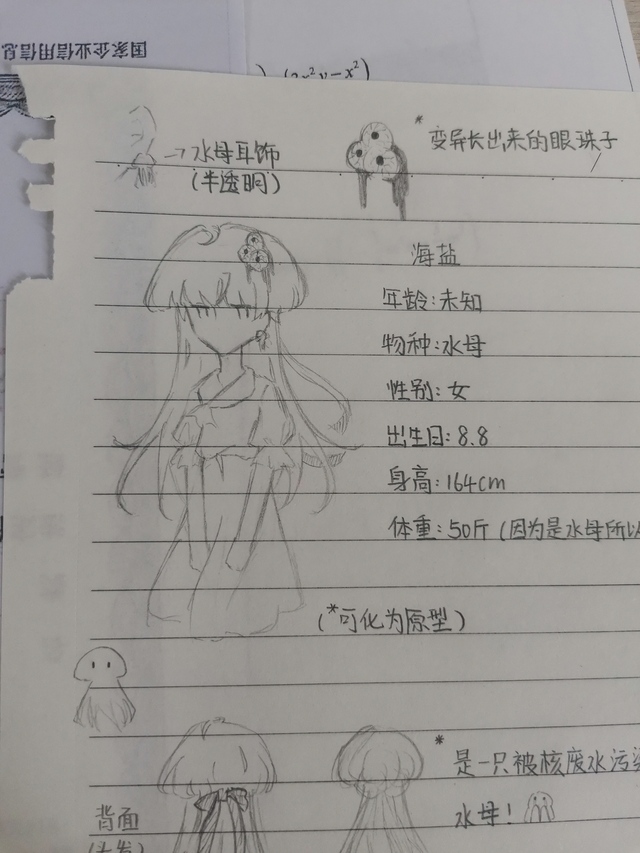 国家企业信用信息
→水母耳饰
(半透明)
*变异长出来的眼珠子
海盐
年龄:未知
物种:水母
性别:女
出生日:8.8
身高:164cm
体重:50斤(因为是水母所以
(*可化为原型)
*是一只被核废水污染
水母!
背面